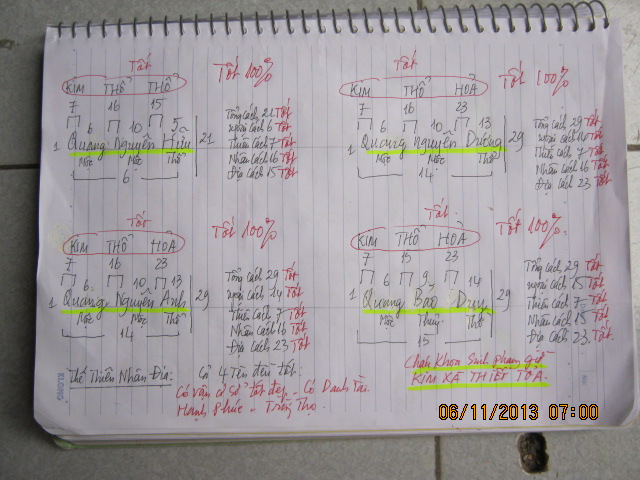 Tốt
KIM THỔ THỔ
Tốt 100%
7 16 15
6 10 5
1 Quang Nguyên Hữu 21
Mộc Mộc Thổ
6
Tổng cách 21 Tốt
ngoại cách 6 Tốt
Thiên cách 7 Tốt
Nhân cách 16 Tốt
Địa cách 15 Tốt
Tốt
KIM THỔ HOẢ
Tốt 100%
7 16 23
6 10 13
1 Quang Nguyên Dương 29
Mộc Mộc Thổ
14
Tổng cách 29 Tốt
ngoại cách 14 Tốt
Thiên cách 7 Tốt
Nhân cách 16 Tốt
Địa cách 23 Tốt
Tốt
KIM THỔ HOẢ
Tốt 100%
7 16 23
6 10 13
1 Quang Nguyên Anh 29
Mộc Mộc Thổ
14
Tổng cách 29 Tốt
ngoại cách 14 Tốt
Thiên cách 7 Tốt
Nhân cách 16 Tốt
Địa cách 23 Tốt
Tốt
KIM THỔ HOẢ
Tốt 100%
7 15 23
6 9 14
1 Quang Bảo Duy 29
Mộc Thuỷ Thổ
15
Tổng cách 29 Tốt
ngoại cách 15 Tốt
Thiên cách 7 Tốt
Nhân cách 15 Tốt
Địa cách 23 Tốt
Thế Thiên Nhân Địa: Cả 4 Tên đều tốt
Có vận cơ sở tốt đẹp - Có Danh Tài
Hạnh Phúc - Trường Thọ.
Cháu Khoa Sinh phạm giờ
KIM XÀ THIẾT TOẢ.
KLONG
06/11/2013 07:00